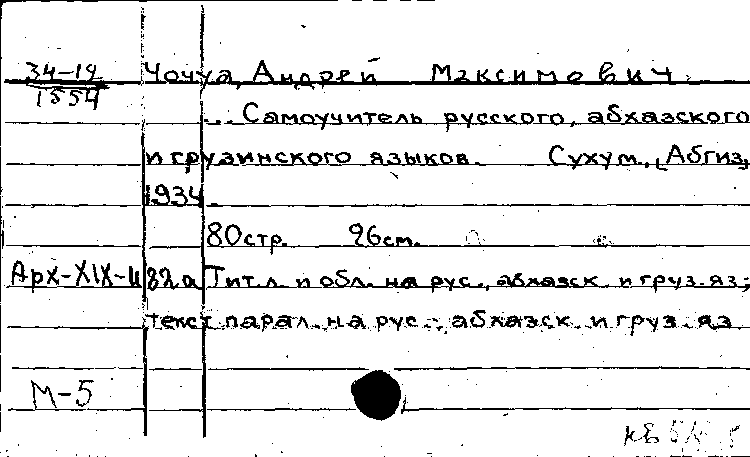 34-19 Чочуа, Андрей Максимович
1554
... Самоучитель русского, абхазского
и грузинского языков. Сухум, [Абгиз,
1934.
80 стр. 26 см.
Арх-XIX-и 82а Тит. л. и обл. на рус., абхазск. и груз. яз;
текст парал. на рус., абхазск. и груз. яз
М-5